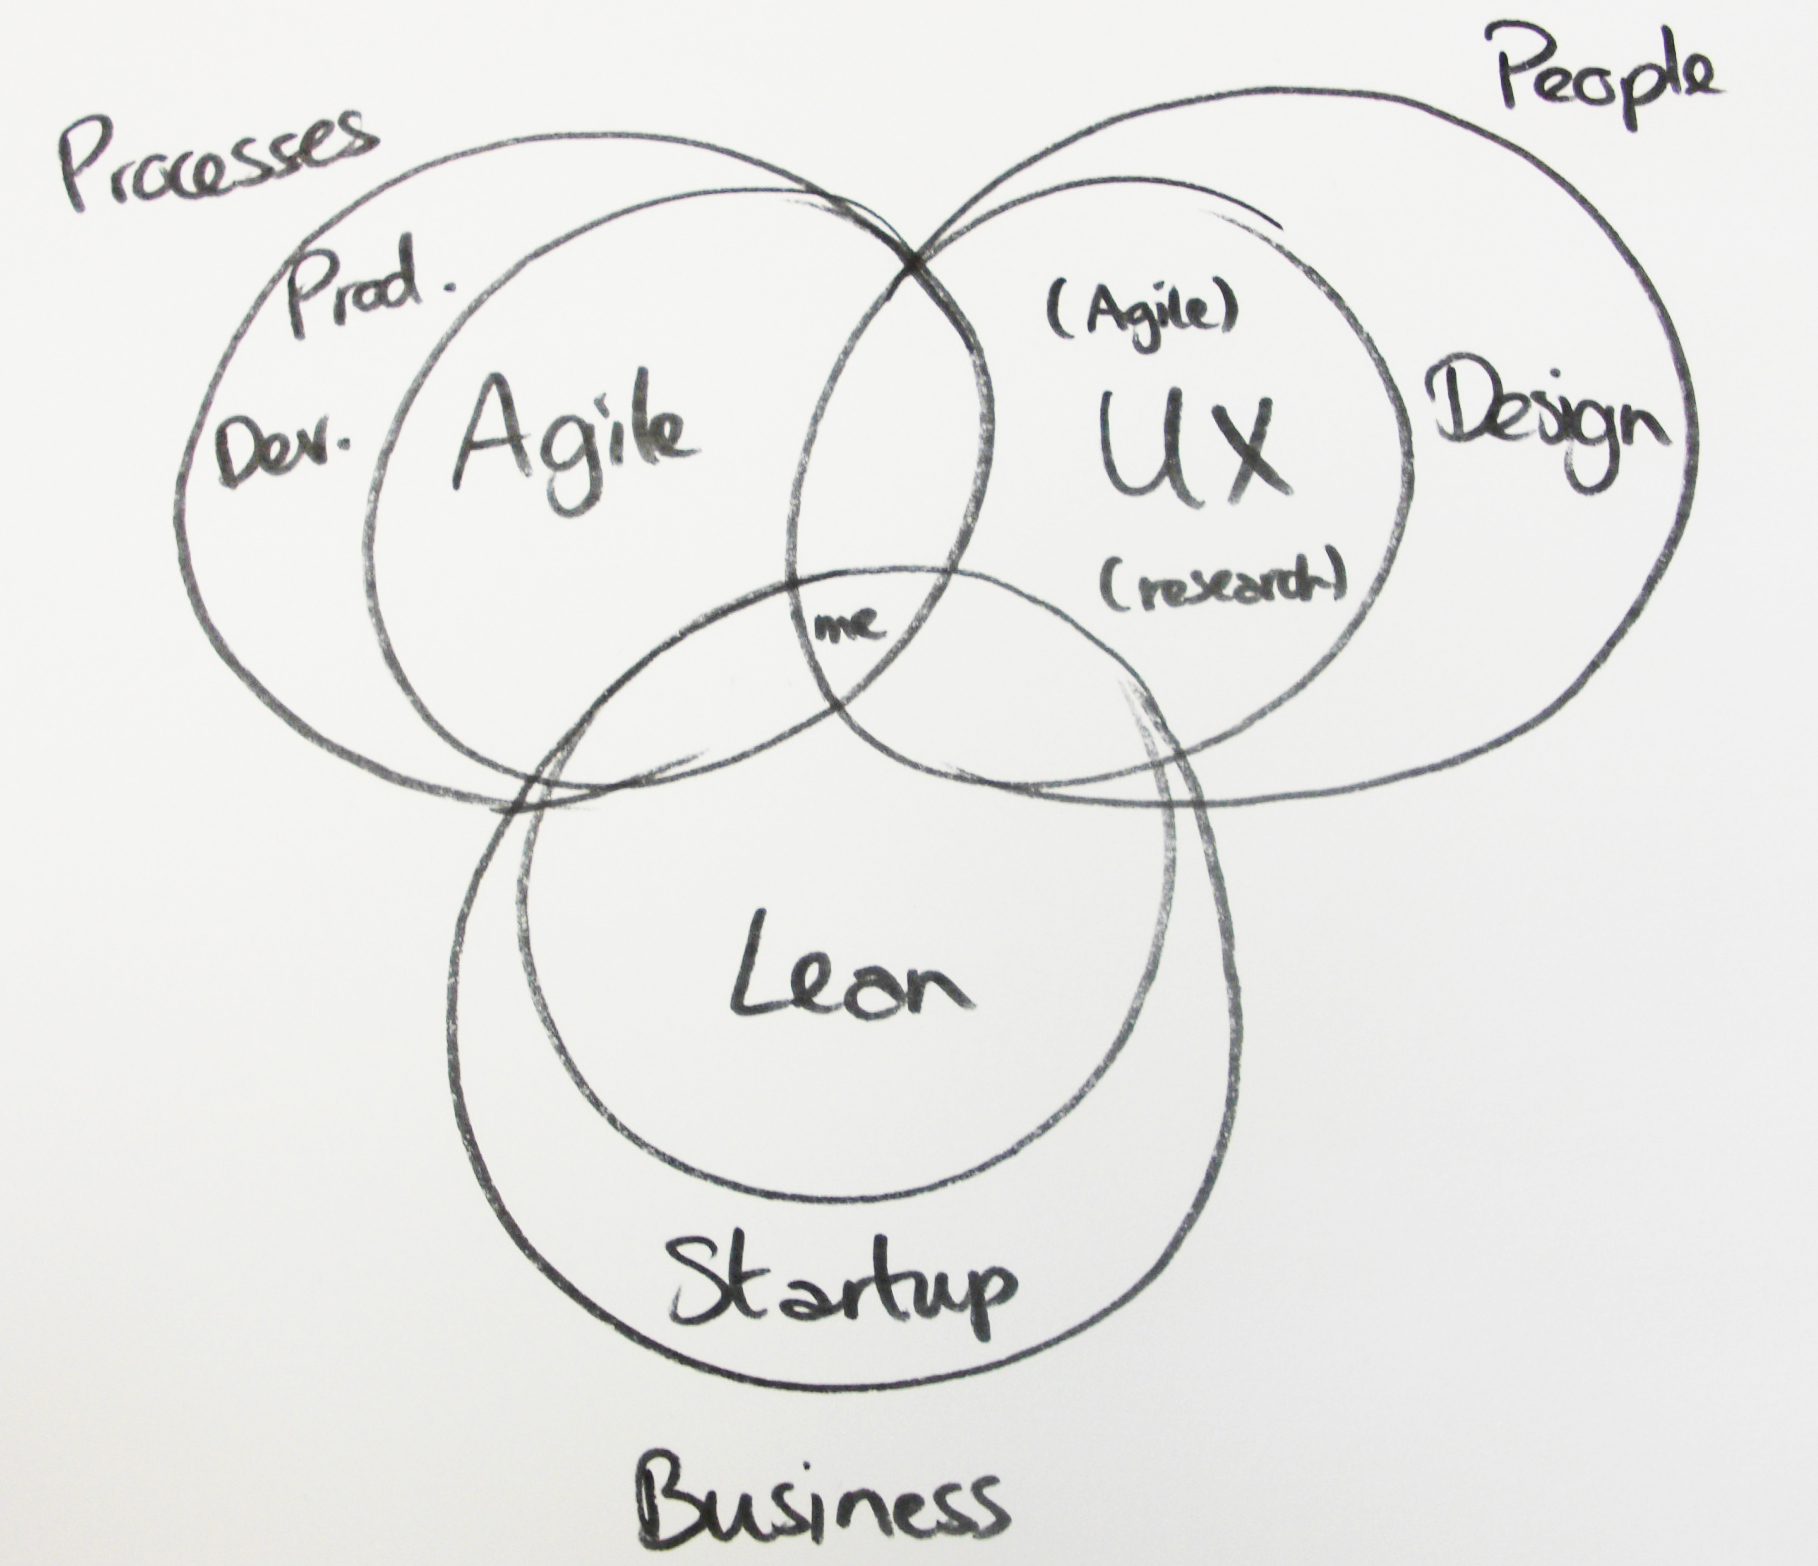 People
Processes
Prod.
Dev.
Agile
(Agile)
UX
(research)
Design
me
Lean
Startup
Business